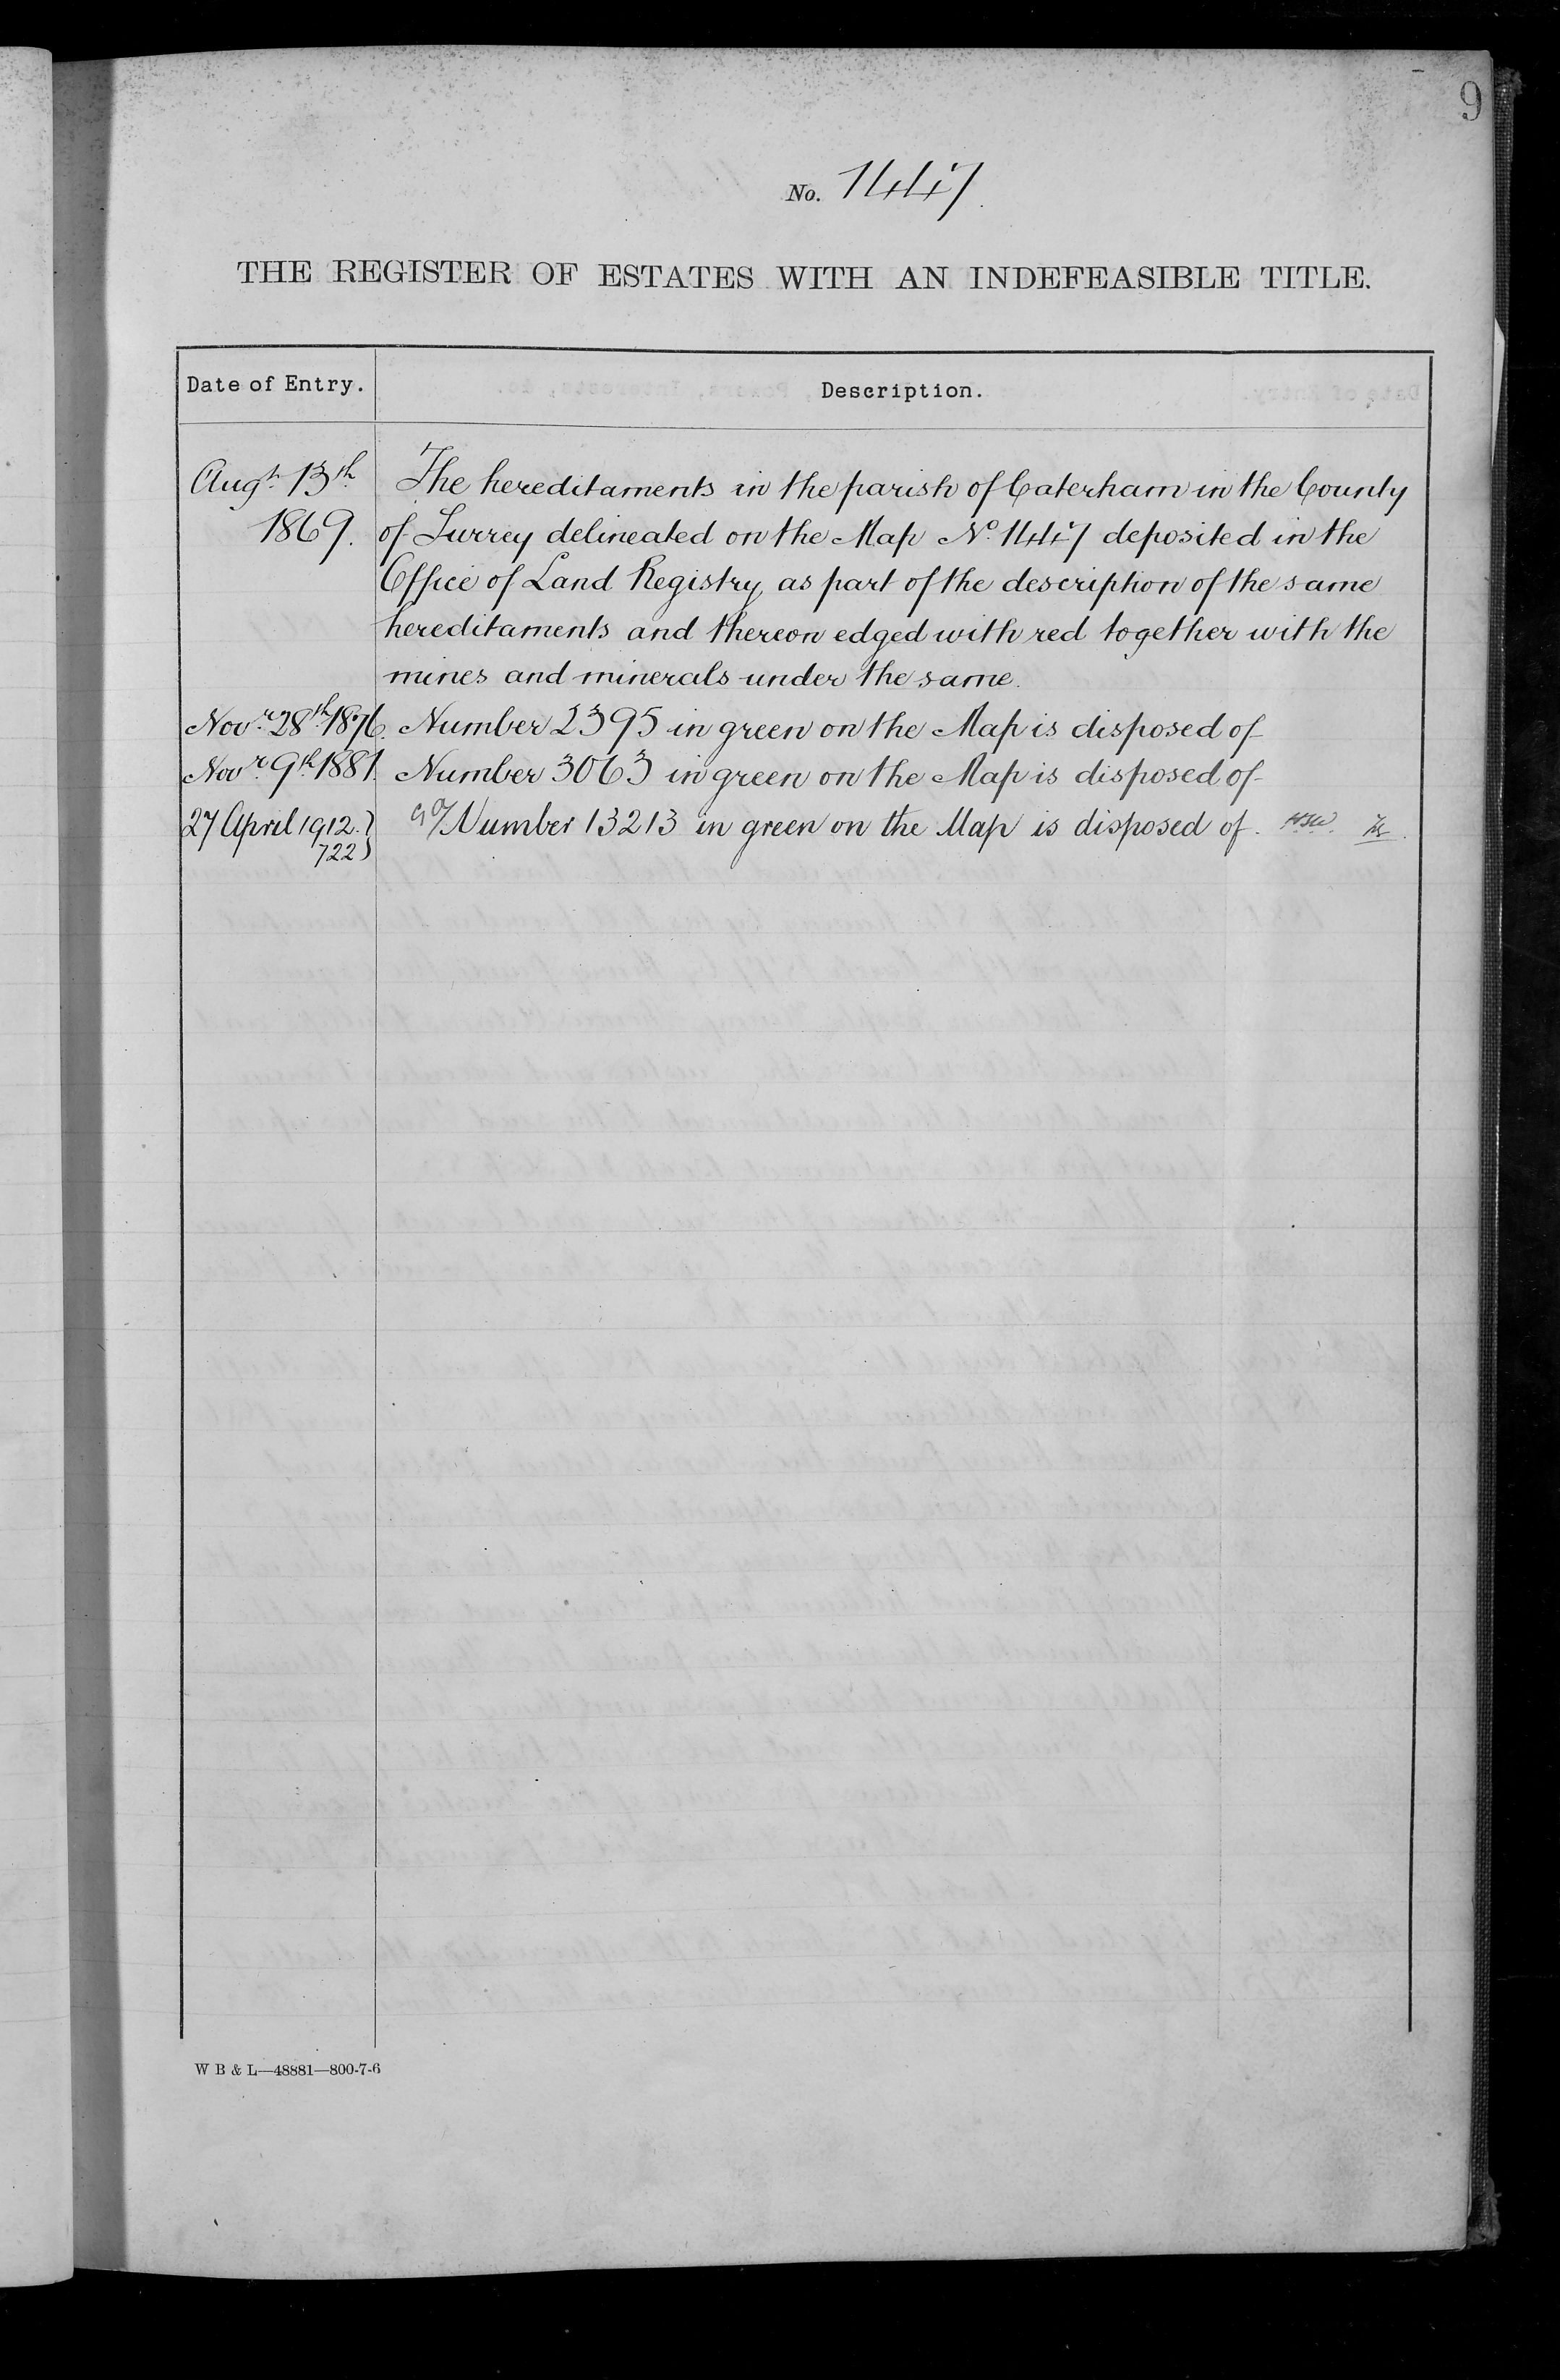 9
No. 1447.
THE REGISTER OF ESTATES WITH AN INDEFEASIBLE TITLE.
Date of Entry. Description.
Augt. 13th The hereditaments in the parish of Caterham in the County
1869. of Surrey delineated on the Map No. 1447 deposited in the
Office of Land Registry as part of the description of the same
hereditaments and thereon edged with red together with the
mines and minerals under the same.
Novr. 28th 1876. Number 2395 in green on the Map is disposed of
Novr. 9th 1881. Number 3063 in green on the Map is disposed of
27 April 1912. Number 13213 in green on the Map is disposed of. HSW.
722
W B & L—48881—800-7-6